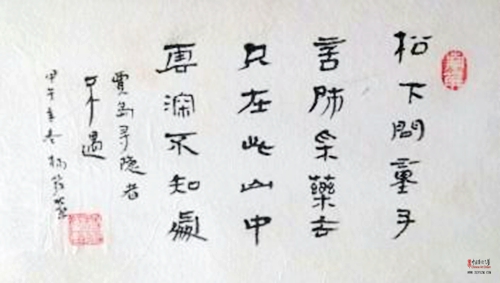 松下問童子
言師采藥去
只在此山中
雲深不知處
賈島尋隱者
不遇